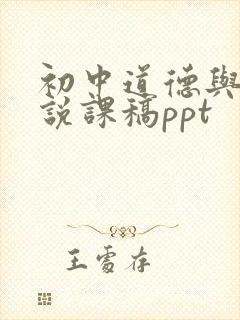 初中道德與
說課稿ppt
王雪存